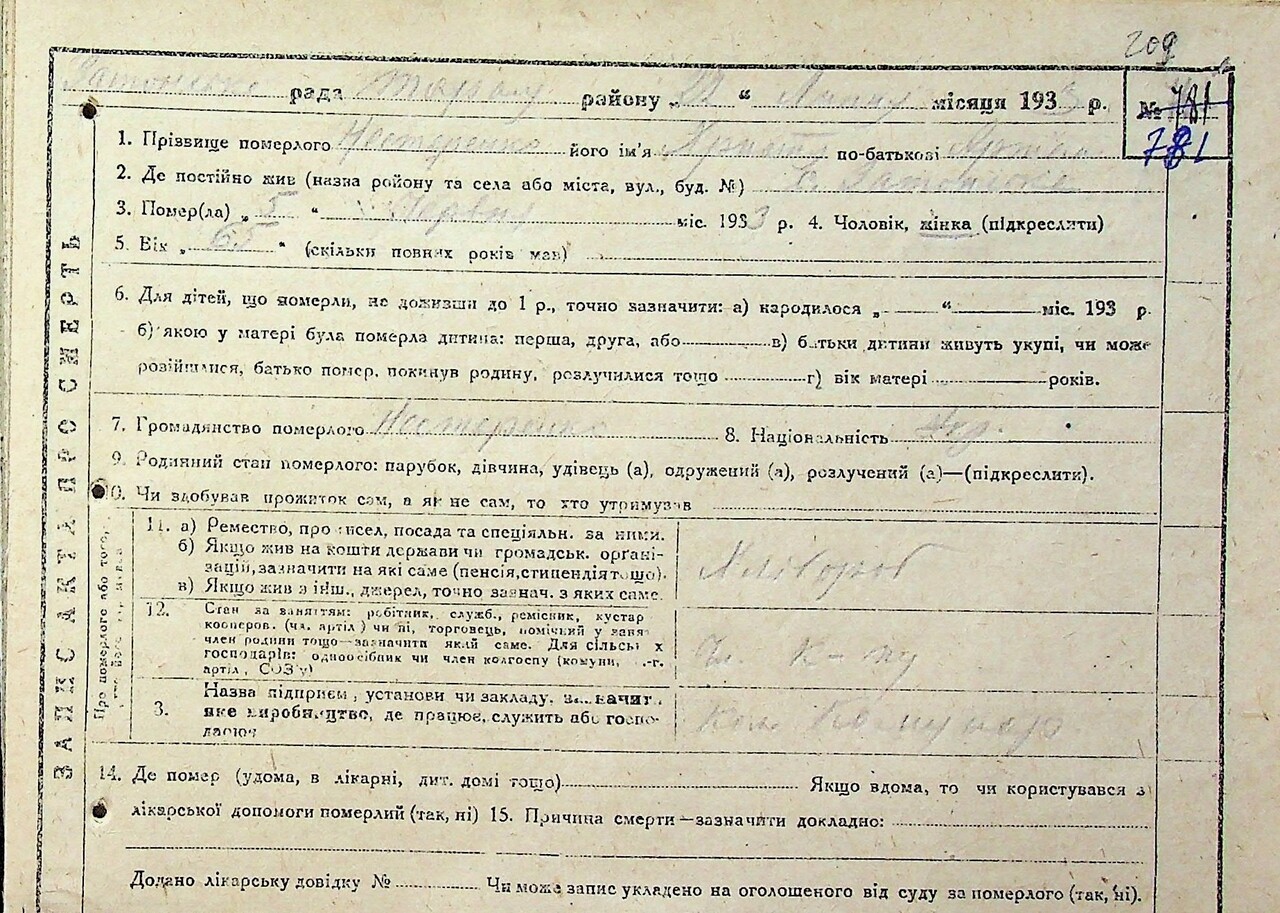 209
рада району „ 22 “ місяця 1933 р. № 781
781
1. Прізвище померлого Нестеренко його ім'я по-батькові
2. Де постійно жив (назва району та села або міста, вул., буд. №) с.
3. Помер(ла) „ 5 “ Червня міс. 1933 р. 4. Чоловік, жінка (підкреслити)
5. Вік „ 65 “ (скільки повних років мав)
6. Для дітей, що померли, не доживши до 1 р., точно зазначити: а) народилося „ “ міс. 193 р.
б) якою у матері була померла дитина: перша, друга, або в) батьки дитини живуть укупі, чи може
розійшлися, батько помер, покинув родину, розлучилися тощо г) вік матері років.
7. Громадянство померлого Нестеренко 8. Національність Укр.
9. Родинний стан померлого: парубок, дівчина, удівець (а), одружений (а), розлучений (а)—(підкреслити).
0. Чи здобував прожиток сам, а як не сам, то хто утримував
11. а) Ремество, промисел, посада та спеціяльн. за ними.
б) Якщо жив на кошти держави чи громадськ. орґані-
зацій, зазначити на які саме (пенсія, стипендія тощо).
в) Якщо жив з інш., джерел, точно зазнач. з яких саме.
Хлібороб
12. Стан за заняттям: робітник, служб., ремісник, кустар
кооперов. (чл. артіл) чи ні, торговець, помічний у занят
член родини тощо—зазначити який саме. Для сільськ х
господарів: одноосібник чи член колгоспу (комуни, -г.
артіл, СОЗ'у)
Чл. к-пу
3. Назва підприєм, установи чи закладу, з начит
яке виробництво, де працює, служить або госпо-
дарює
14. Де помер (удома, в лікарні, дит. домі тощо) Якщо вдома, то чи користувався з
лікарської допомоги померлий (так, ні) 15. Причина смерти—зазначити докладно:
Додано лікарську довідку № Чи може запис укладено на оголошеного від суду за померлого (так, ні).
ЗАПИС АКТА ПРО СМЕРТЬ
Про померлого або того,